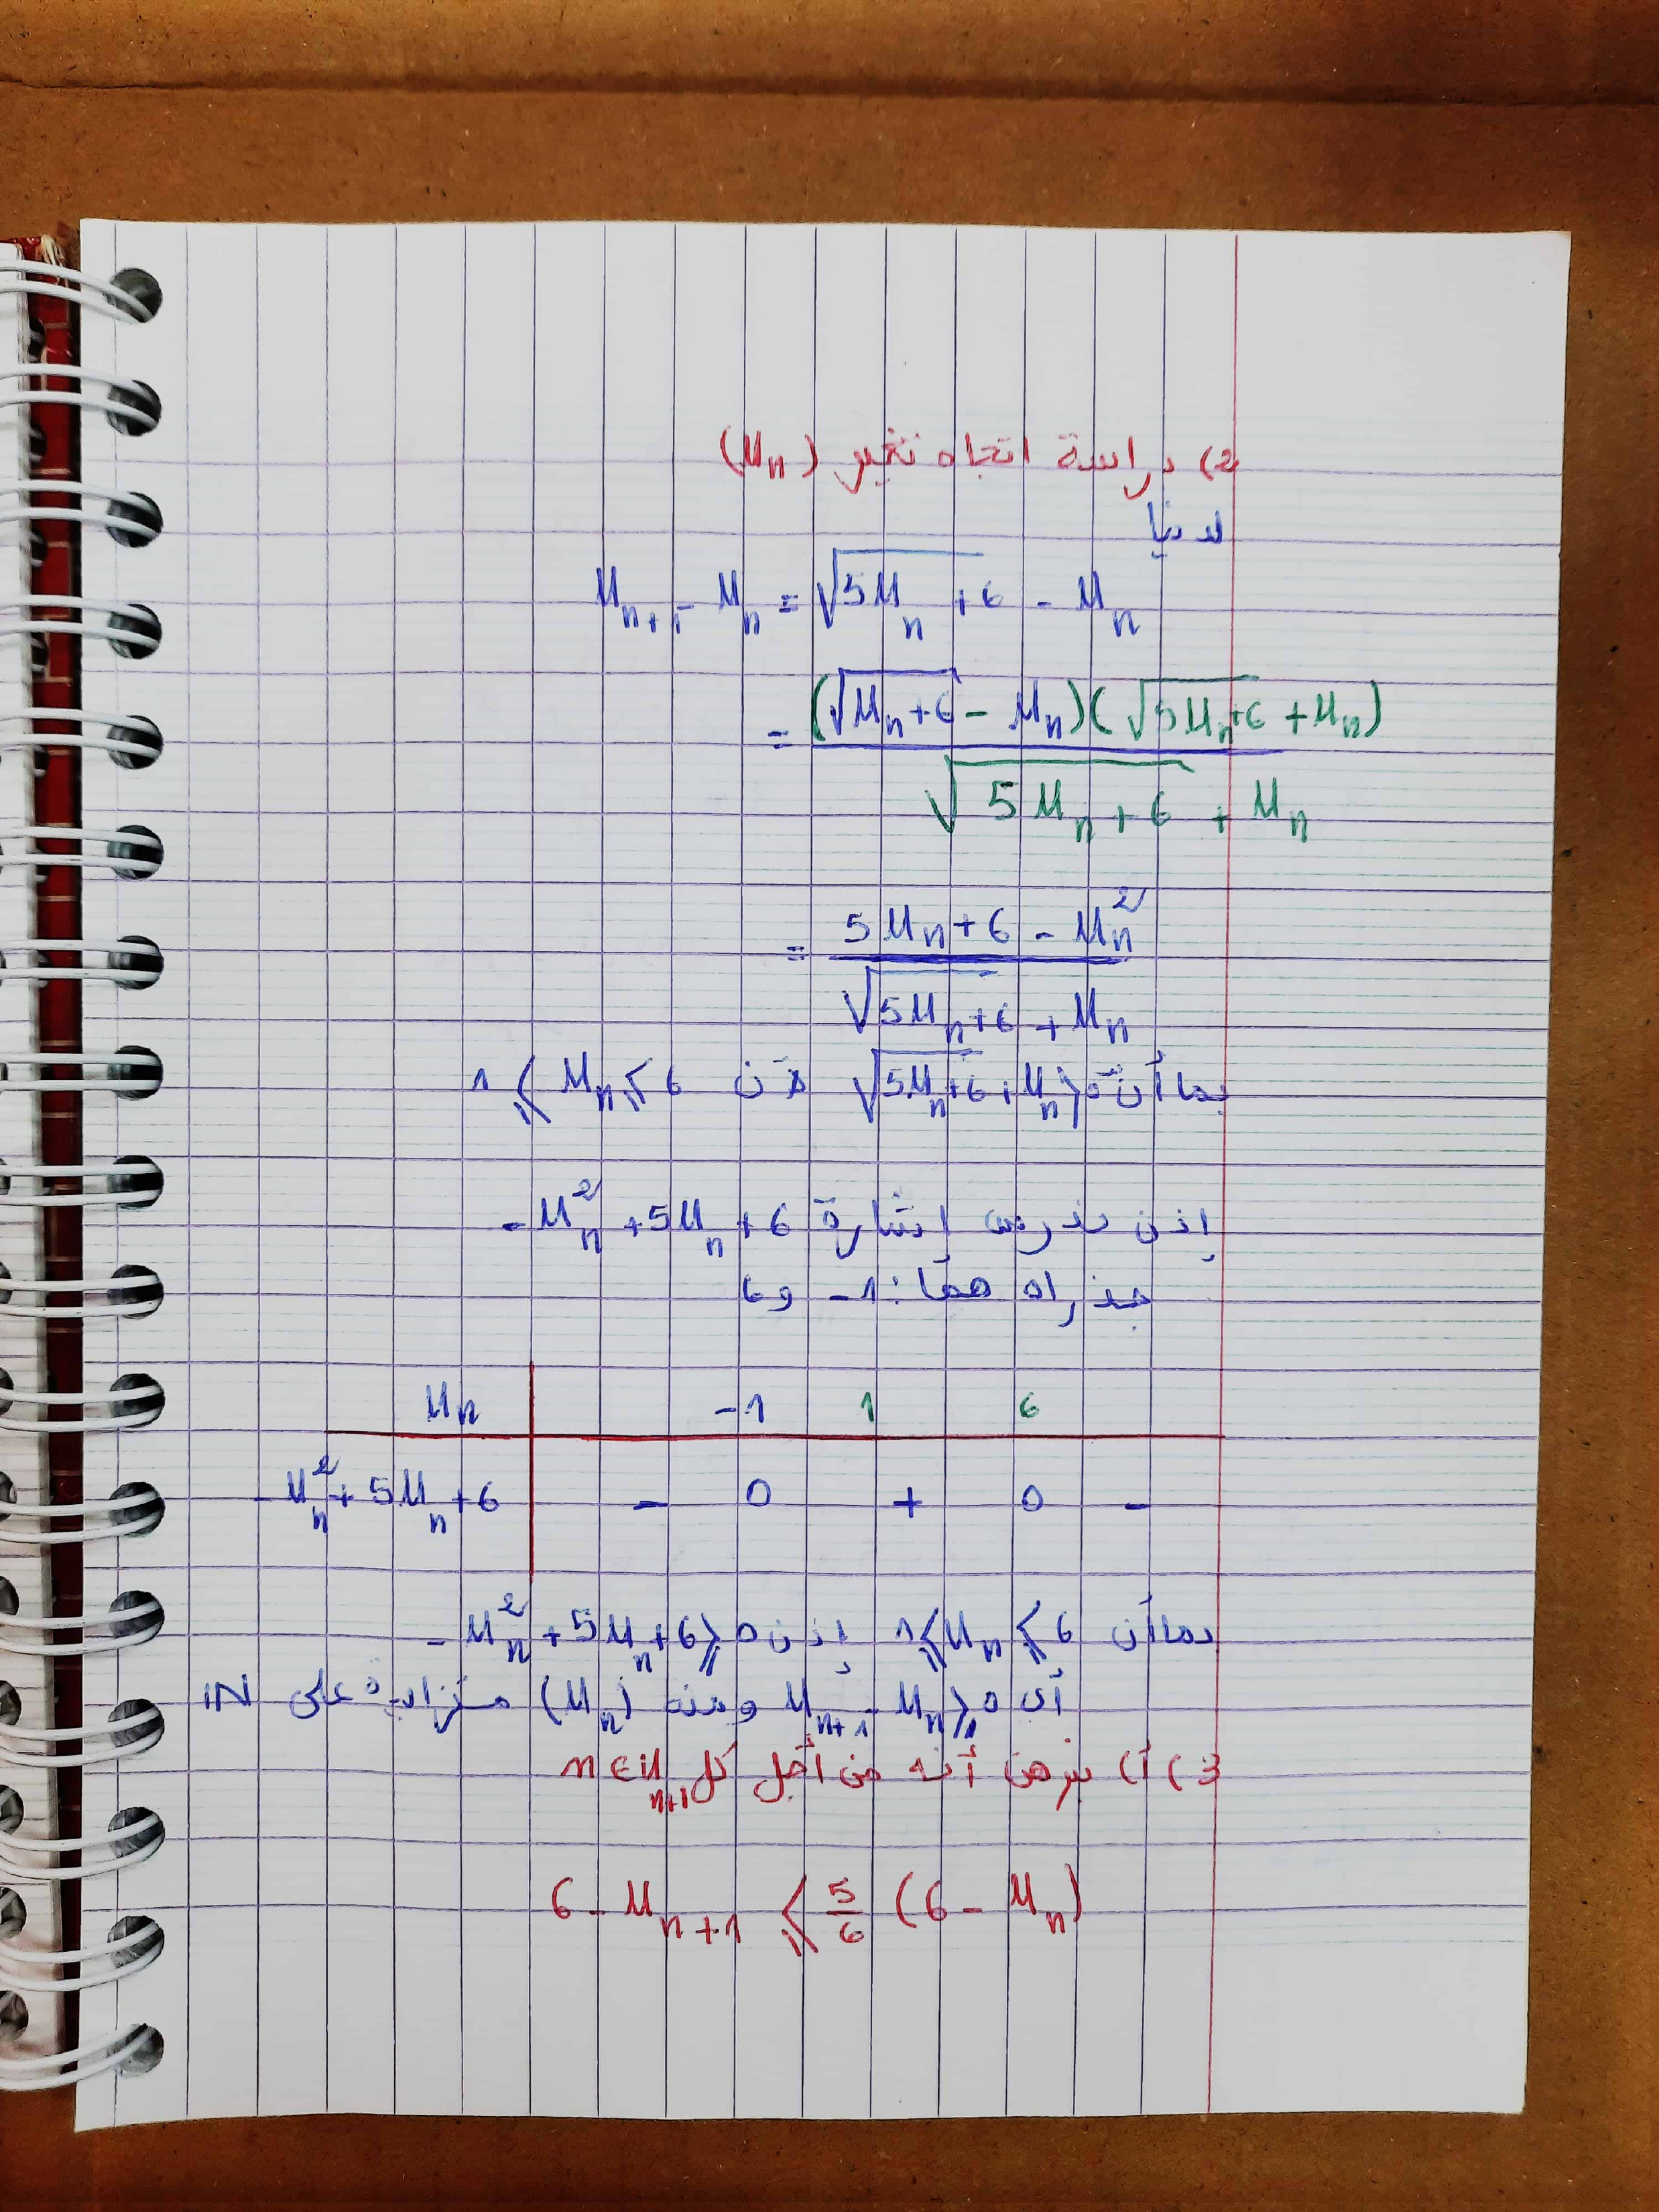 2) دراسة اتجاه تغير (Un)
لدينا
Un+1 - Un = √(5Un+6) - Un
= (√(Un+6) - Un)(√(5Un+6) + Un) / (√(5Un+6) + Un)
= (5Un+6 - Un²) / (√(5Un+6) + Un)
بما أن √(5Un+6) + Un > 0 لأن 1 ⩽ Un ⩽ 6
إذن ندرس إشارة -Un² + 5Un + 6
جذراه هما: -1 و 6
Un | -1 1 6
-Un² + 5Un + 6 | - 0 + 0 -
بما أن 1 ⩽ Un ⩽ 6 إذن -Un² + 5Un + 6 ⩾ 0
أي Un+1 - Un ⩾ 0 ومنه (Un) متزايدة على IN
3) أ) نبرهن أنه من أجل كل n∈IN
n+1
6 - Un+1 ⩽ 5/6 (6 - Un)